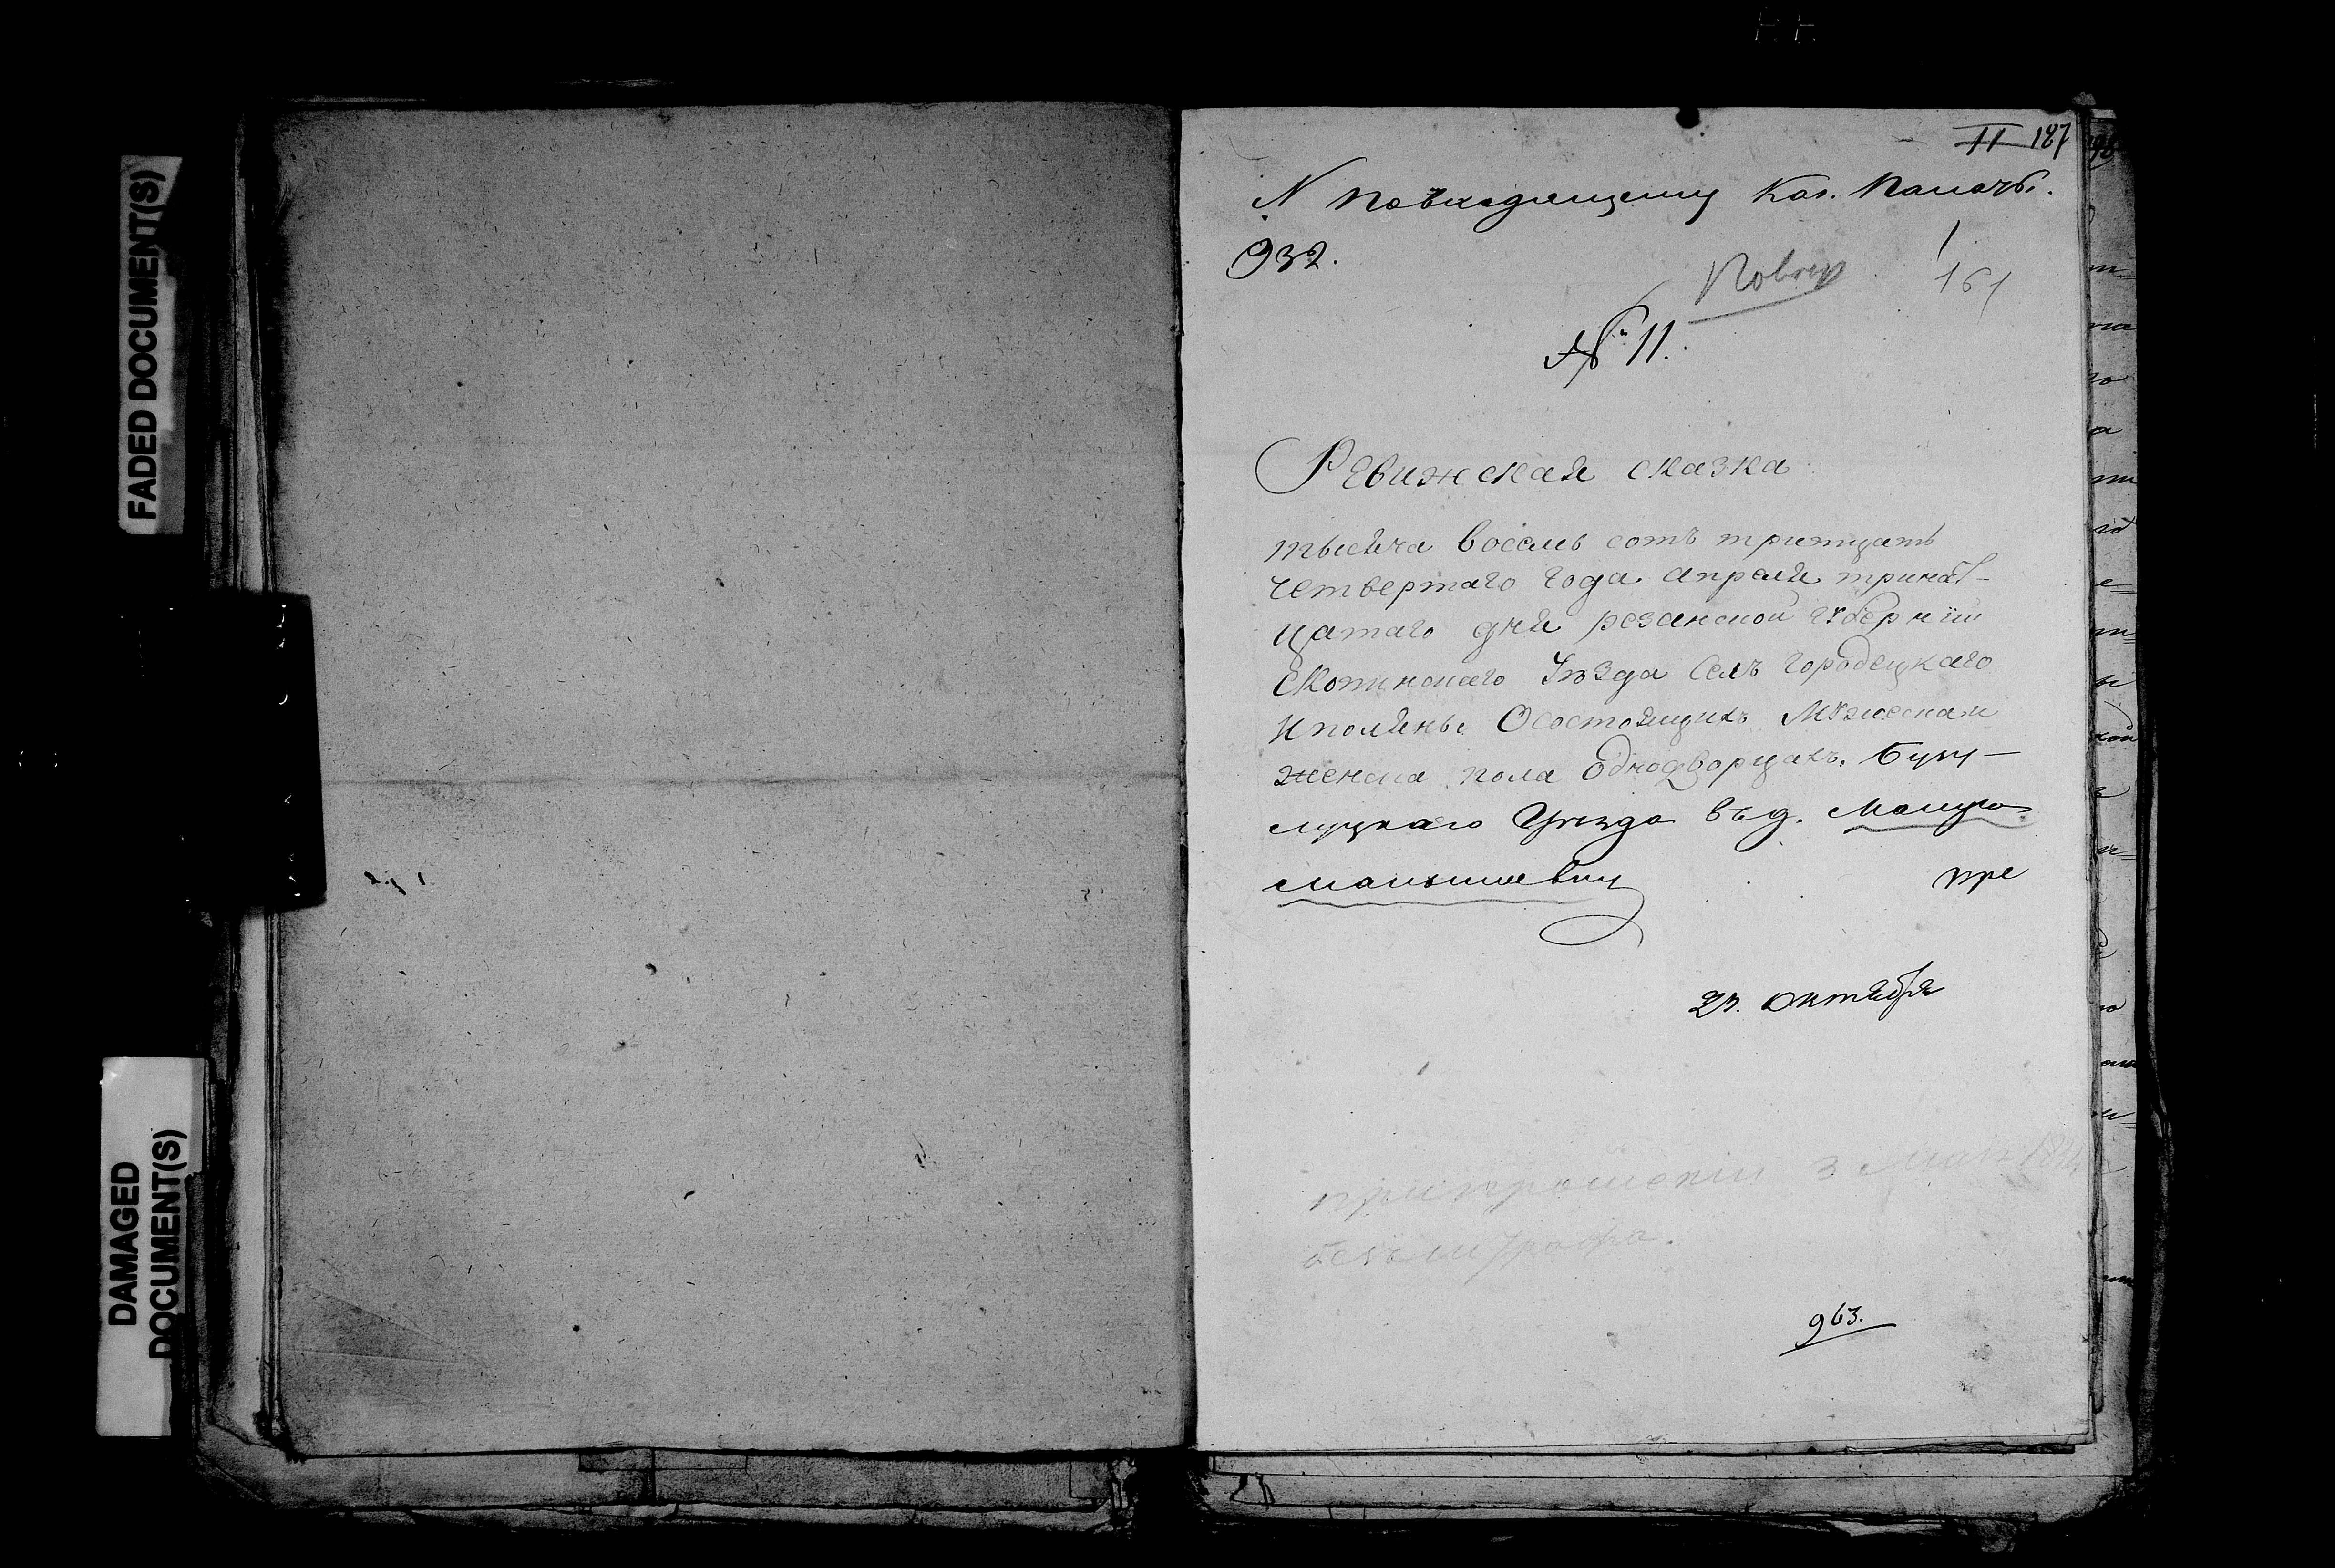 FADED DOCUMENT(S)
DAMAGED
DOCUMENT(S)
11 187
N По входящему Каз. Палаты.
932.
Повер
161
№ 11.
Ревижская сказка
тысяча восемь сотъ тритцать
четвертаго года апреля тринат-
цатаго дня резанской губерніи
Скопинскаго Уѣзда Селъ Городецкаго
И поляньі О состоящихъ Мужеска и
женска пола Однодворцахъ. Бузу-
луцкаго Уѣзда въ д.
пре
23. октября
при прошеніи 3 Мая
безъ штрафа.
963.